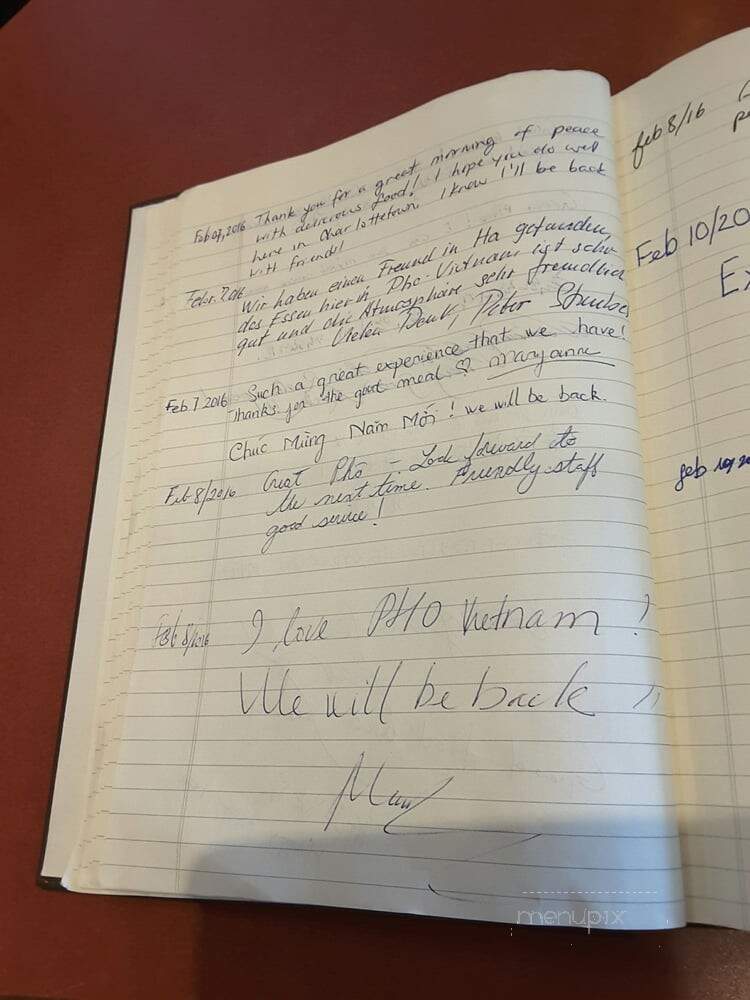 Feb 07, 2016 Thank you for a great morning of peace
with delicious food! I hope you do well
here in Charlottetown. I know I'll be back
with friends!
Febr. 7. 2016 Wir haben einen Freund in Ha gefunden,
das Essen hier in Pho-Vietnam ist sehr
gut und die Atmosphäre sehr freundlich
Vielen Dank, Peter
Feb 7 2016 Such a great experience that we have!
Thanks for the good meal ♡ Maryanne
Chúc Mừng Năm Mới! we will be back.
Feb 8/2016 Great Pho - Look forward to
the next time. Friendly staff
good service!
Feb 8/2016 I love PHO Vietnam!
We will be back !!
feb 8/16
Feb 10/20
Ex
feb 10, 20
menupix